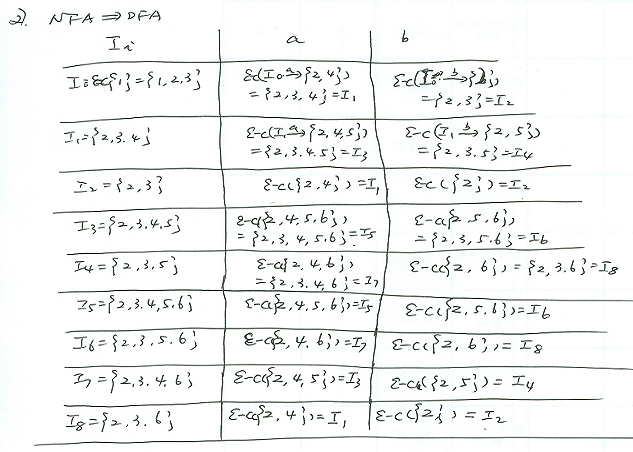 2). NFA ⇒ DFA
Ii a b
I0=ε-c{1}={1,2,3} ε-c(I0 a→{2,4}) ={2,3,4}=I1 ε-c(I0 b→{2}) ={2,3}=I2
I1={2,3.4} ε-c(I1 a→{2,4,5}) ={2,3.4.5}=I3 ε-c(I1 b→{2,5}) ={2,3.5}=I4
I2={2,3} ε-c({2,4})=I1 ε-c({2})=I2
I3={2,3,4,5} ε-c({2,4,5.6}) ={2,3,4,5.6}=I5 ε-c({2,5.6}) ={2,3,5.6}=I6
I4={2,3.5} ε-c({2,4,6}) ={2,3.4,6}=I7 ε-c({2,6})={2,3.6}=I8
I5={2,3.4,5.6} ε-c({2,4,5,6})=I5 ε-c({2,5.6})=I6
I6={2,3,5.6} ε-c({2,4,6})=I7 ε-c({2,6})=I8
I7={2,3.4,6} ε-c({2,4,5})=I3 ε-c({2,5})=I4
I8={2,3.6} ε-c({2,4})=I1 ε-c({2})=I2